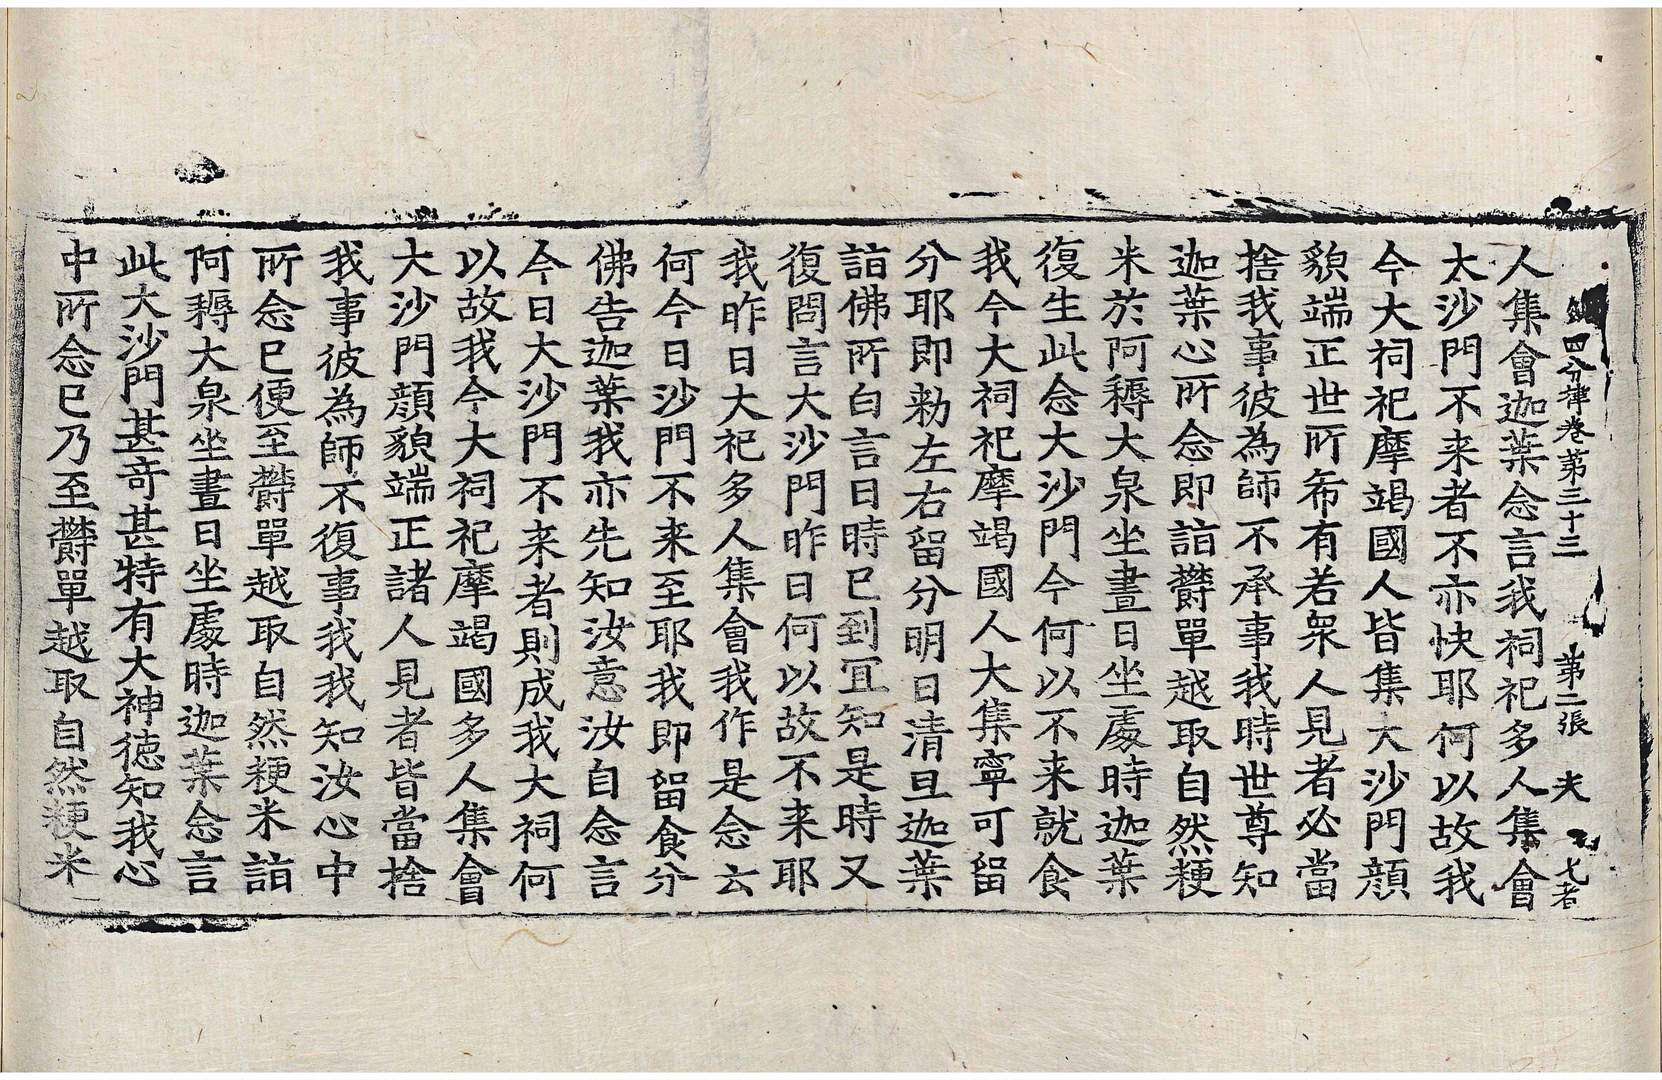 四分律卷第三十三 第二張 夫
人集會迦葉念言我祠祀多人集會
大沙門不来者不亦快耶何以故我
今大祠祀摩竭國人皆集大沙門顔
貌端正世所希有若衆人見者必當
捨我事彼為師不承事我時世尊知
迦葉心所念即詣欝單越取自然粳
米於阿耨大泉坐晝日坐處時迦葉
復生此念大沙門今何以不来就食
我今大祠祀摩竭國人大集寧可留
分耶即勑左右留分明日清旦迦葉
詣佛所白言日時已到冝知是時又
復問言大沙門昨日何以故不来耶
我昨日大祀多人集會我作是念云
何今日沙門不来至耶我即留食分
佛告迦葉我亦先知汝意汝自念言
今日大沙門不来者則成我大祠何
以故我今大祠祀摩竭國多人集會
大沙門顔貌端正諸人見者皆當捨
我事彼為師不復事我我知汝心中
所念已便至欝單越取自然粳米詣
阿耨大泉坐晝日坐處時迦葉念言
此大沙門甚奇甚特有大神徳知我心
中所念已乃至欝單越取自然粳米